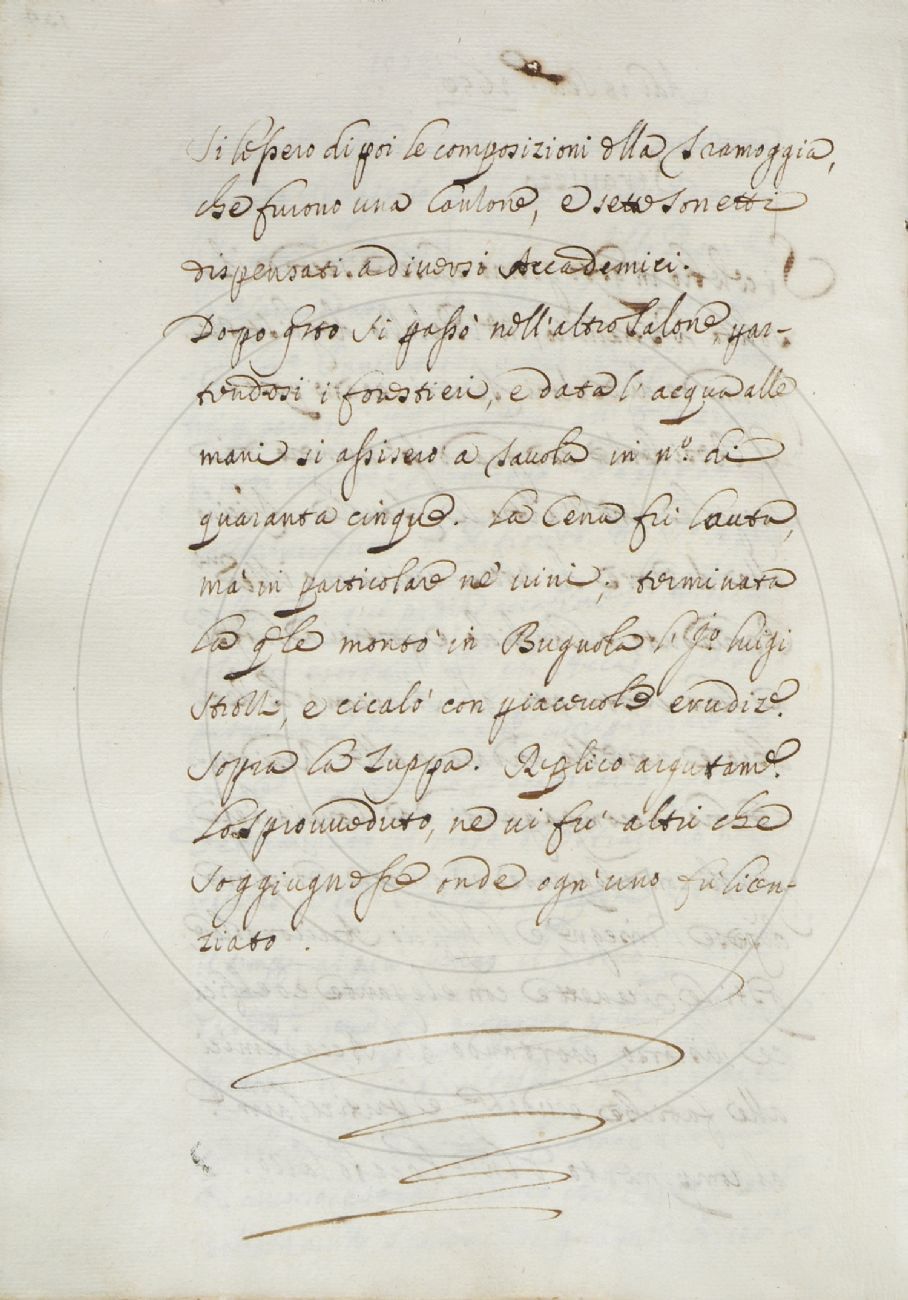 Si lessero di poi le composizioni dlla Tramoggia,
che furono una Canzone, e sette Sonetti
dispensati a diversi Accademici.
Dopo Qsto si passò nell'altro Salone, par-
tendosi i forestieri, e data l'acqua alle
mani si assisero a tavola in n.º di
quaranta cinque. La Cena fù lauta,
mà in particolare ne' vini; terminata
la qle montò in Bugnola l'  Luigi
Strozzi, e cicalò con piacevole erudize.
sopra la Zuppa. Replicò argutame.
Lo Sprovveduto, ne vi fù altri che
soggiugnesse onde ogn'uno fù licen-
ziato.